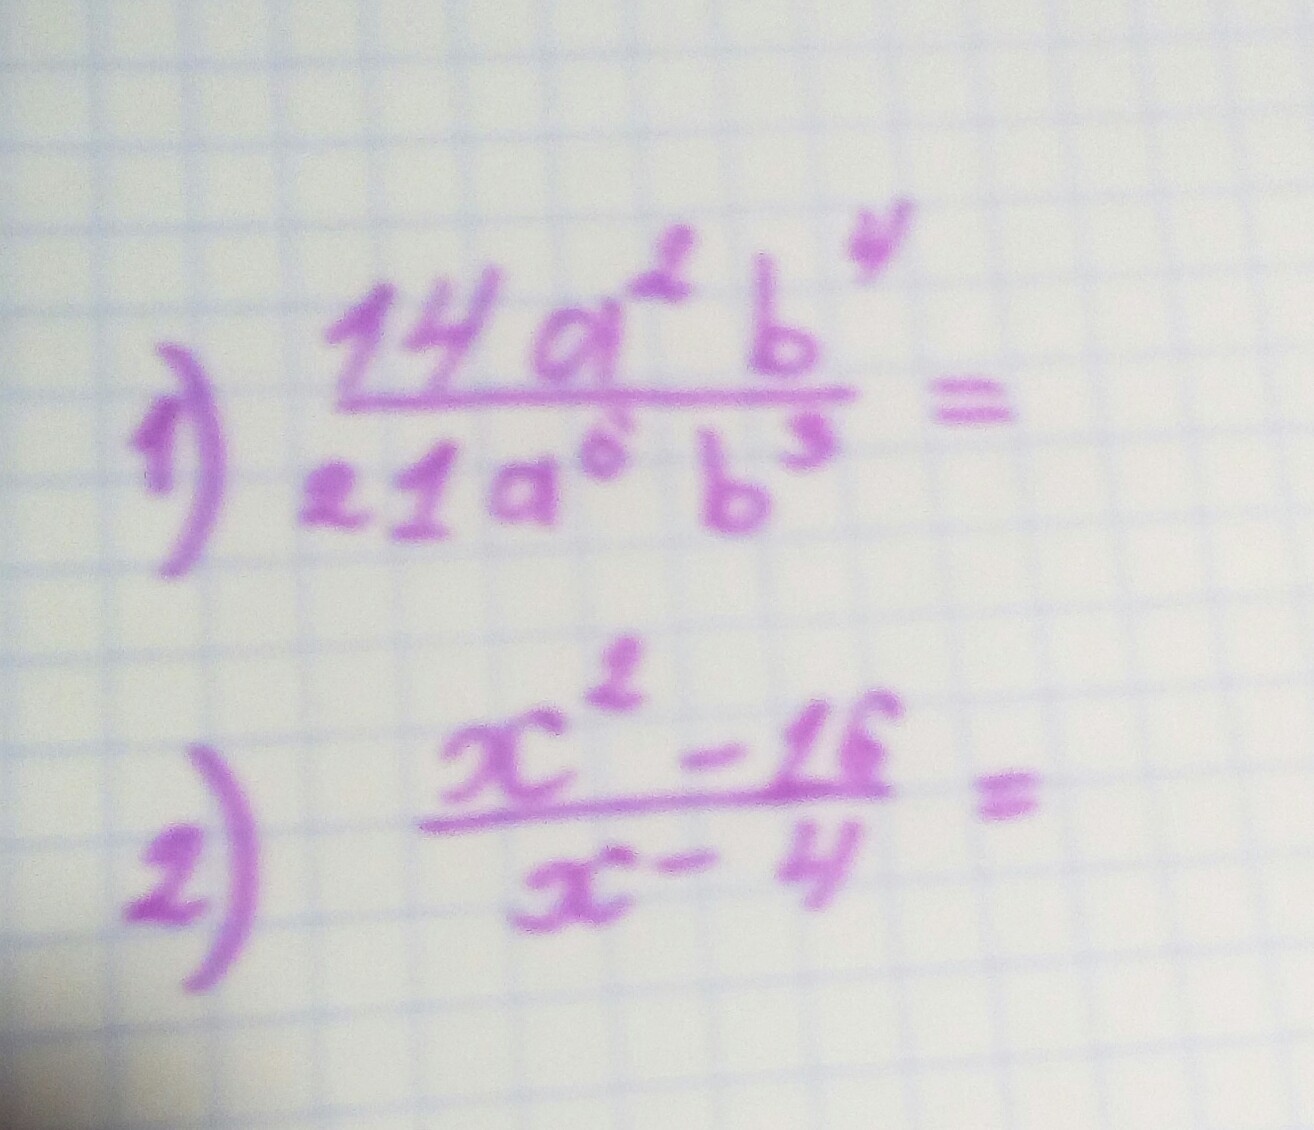 1) 14a²b⁴ / 21a⁶b³ =
2) x² - 16 / x - 4 =